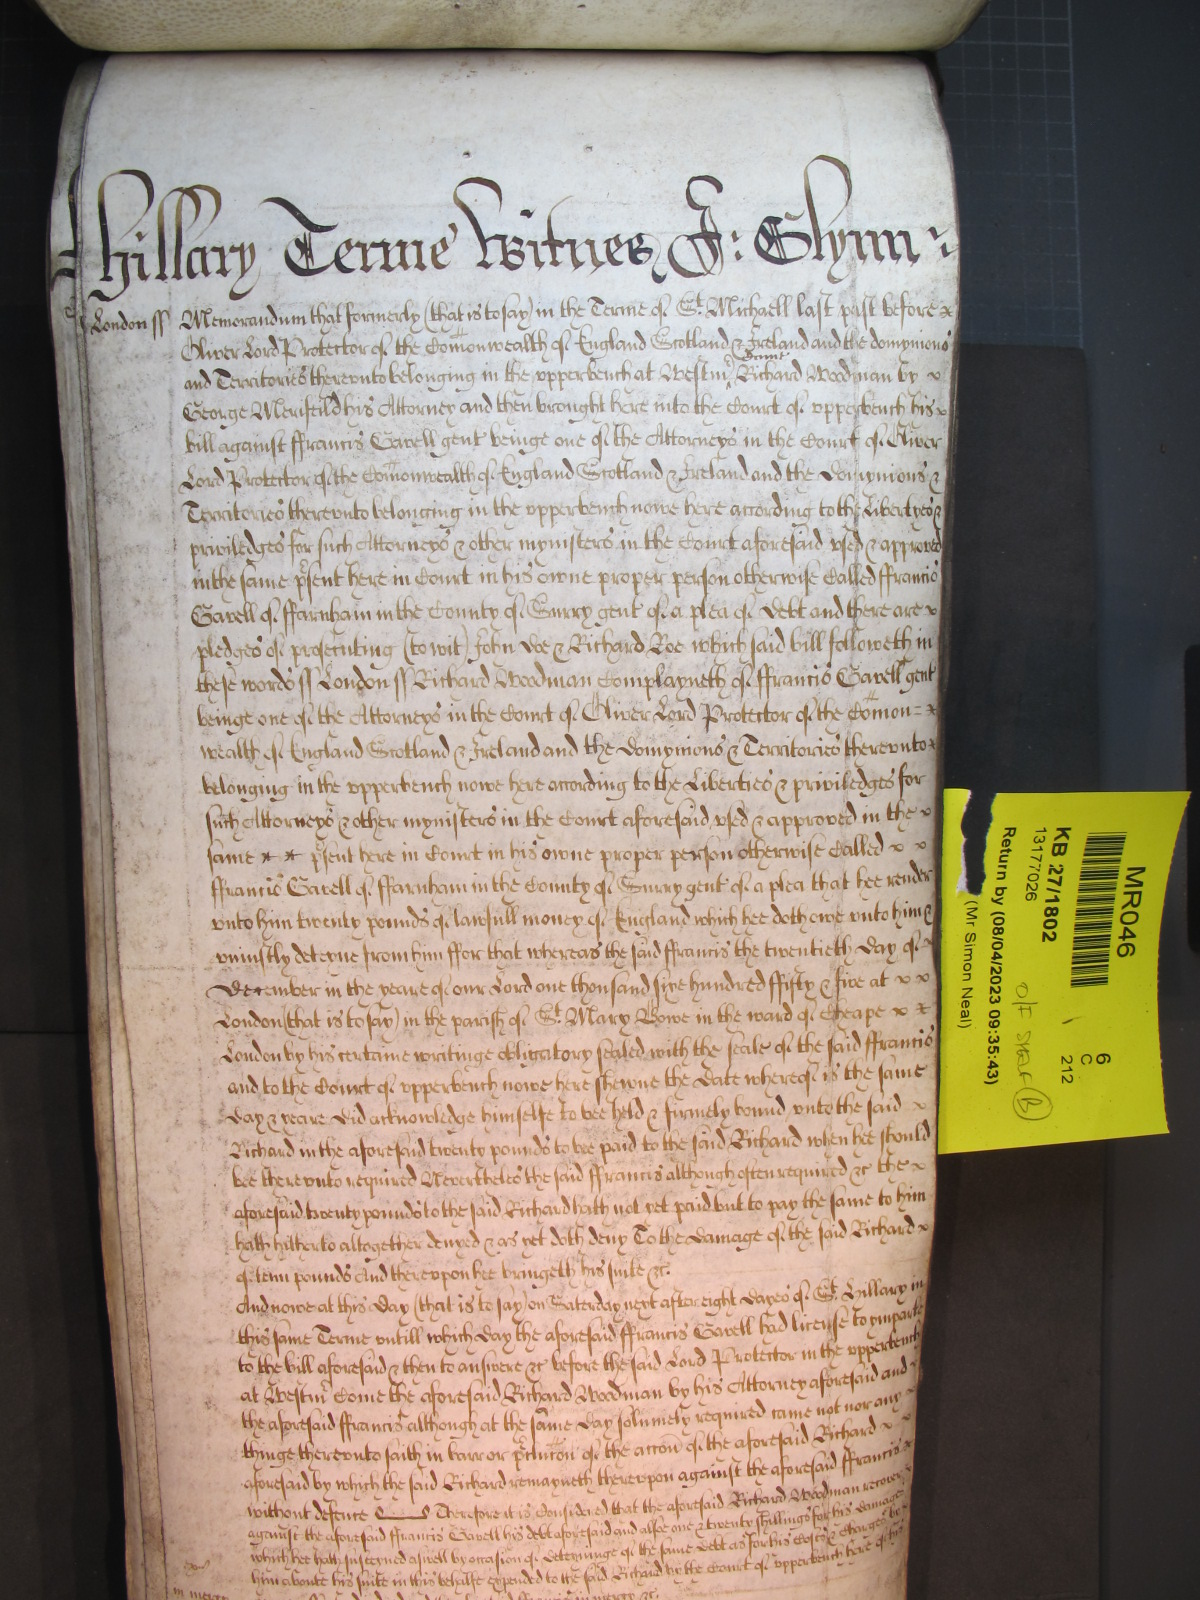 Hillary Terme Witnes J: Glynn
London ss Memorandum that formerly (that is to say) in the Terme of St. Michaell last past before
Oliver Lord Protector of the Comonwealth of England Scotland & Ireland and the dominions
and Territories therevnto belonging in the vpperbench at Westmr came Richard Woodman by
George Merifeild his Attorney and then brought here into the Court of vpperbench his
bill against ffrancis Gavell gent beinge one of the Attorneys in the Court of Oliver
Lord Protector of the Comonwealth of England Scotland & Ireland and the Domynions &
Territories therevnto belonging in the vpperbench nowe here according to the Libertyes &
priviledges for such Attorneys & other mynisters in the Court aforesaid vsed & approved
in the same psent here in Court in his owne proper person otherwise Called ffrancis
Gavell of ffarnham in the County of Surry gent of a plea of Debt and there are
pledges of prosecuting (to wit) John Doe & Richard Roe which said bill followeth in
these words ss London ss Richard Woodman Complayneth of ffrancis Gavell gent
beinge one of the Attorneys in the Court of Oliver Lord Protector of the Comon=
wealth of England Scotland & Ireland and the Domynions & Territories therevnto
belonging in the vpperbench nowe here according to the Liberties & priviledges for
such Attorneys & other mynisters in the Court aforesaid vsed & approved in the
same psent here in Court in his owne proper person otherwise Called
ffrancis Gavell of ffarnham in the County of Surry gent of a plea that hee render
vnto him twenty pounds of lawfull money of England which hee doth owe vnto him &
vniustly deteyne from him ffor that whereas the said ffrancis the twentieth Day of
December in the yeare of our Lord one thousand sixe hundred ffifty & five at
London (that is to say) in the parish of St. Mary Bowe in the ward of Cheape
London by his certaine writinge obligatory sealed with the seale of the said ffrancis
and to the Court of vpperbench nowe here shewne the Date whereof is the same
Day & yeare Did acknowledge himselfe to bee held & firmely bound vnto the said
Richard in the aforesaid twenty pounds to bee paid to the said Richard when hee should
bee therevnto required Neverthelesse the said ffrancis although often required &c the
aforesaid twenty pounds to the said Richard hath not yet paid but to pay the same to him
hath hitherto altogether denyed & as yet doth deny To the Damage of the said Richard
of tenn pounds And therevpon hee bringeth his suite &c.
And nowe at this Day (that is to say) on Saterday next after eight Dayes of St. Hillary in
this same Terme vntill which Day the aforesaid ffrancis Gavell had license to imparle
to the bill aforesaid & then to answere &c before the said Lord Protector in the vpperbench
at Westmr Come the aforesaid Richard Woodman by his Attorney aforesaid and
the aforesaid ffrancis although at the same day solemnely required came not nor any
thinge therevnto saith in barr or pclucon of the accon of the aforesaid Richard
aforesaid by which the said Richard remayneth therevpon against the aforesaid ffrancis
without defence Therefore it is Considered that the aforesaid Richard Woodman recover
against the aforesaid ffrancis Gavell his debt aforesaid and alsoe one & twenty shillings for his damages
which hee hath susteyned aswell by occasion of deteyninge of the same debt as for his Costs & Charges by
him aboute his suite in this behalfe expended to the said Richard by the Court of vpperbench here of his
in mercy ffrancis in mercy &c.
MR046
6
C
212
KB 27/1802
13177026
Return by (08/04/2023 09:35:43)
(Mr Simon Neal)
O/F SHELF B